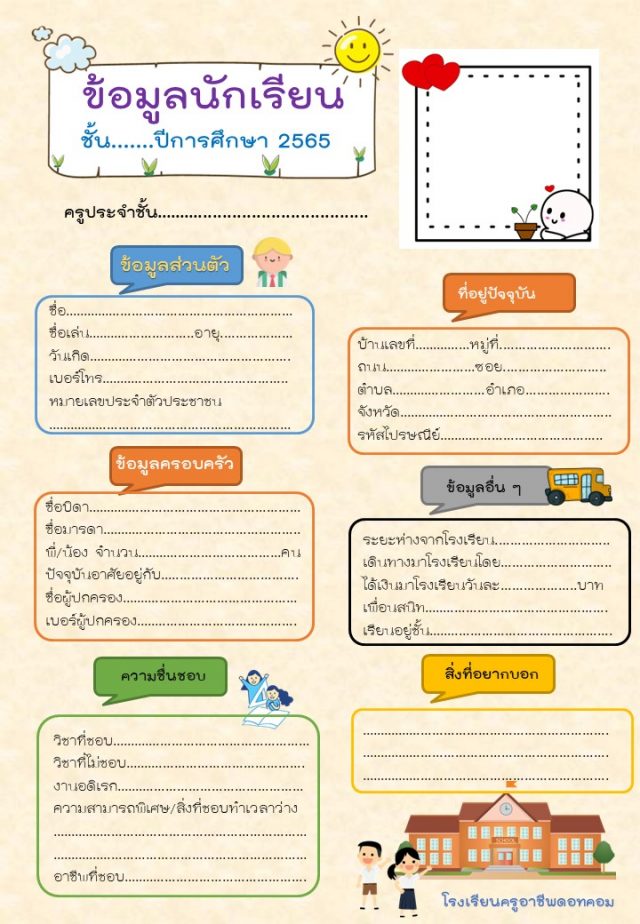 ข้อมูลนักเรียน
ชั้น.......ปีการศึกษา 2565
ครูประจำชั้น..........................................
ข้อมูลส่วนตัว
ชื่อ..........................................................
ชื่อเล่น...........................อายุ...................
วันเกิด....................................................
เบอร์โทร................................................
หมายเลขประจำตัวประชาชน
..............................................................
ที่อยู่ปัจจุบัน
บ้านเลขที่..............หมู่ที่.............................
ถนน.......................ซอย...........................
ตำบล........................อำเภอ......................
จังหวัด.......................................................
รหัสไปรษณีย์..........................................
ข้อมูลครอบครัว
ชื่อบิดา......................................................
ชื่อมารดา...................................................
พี่/น้อง จำนวน.....................................คน
ปัจจุบันอาศัยอยู่กับ....................................
ชื่อผู้ปกครอง.............................................
เบอร์ผู้ปกครอง.........................................
ข้อมูลอื่น ๆ
ระยะห่างจากโรงเรียน..............................
เดินทางมาโรงเรียนโดย............................
ได้เงินมาโรงเรียนวันละ....................บาท
เพื่อนสนิท................................................
เรียนอยู่ชั้น................................................
ความชื่นชอบ
วิชาที่ชอบ...................................................
วิชาที่ไม่ชอบ..............................................
งานอดิเรก................................................
ความสามารถพิเศษ/สิ่งที่ชอบทำเวลาว่าง
.................................................................
.................................................................
อาชีพที่ชอบ...............................................
สิ่งที่อยากบอก
...............................................................
...............................................................
...............................................................
SCHOOL
โรงเรียนครูอาชีพดอทคอม